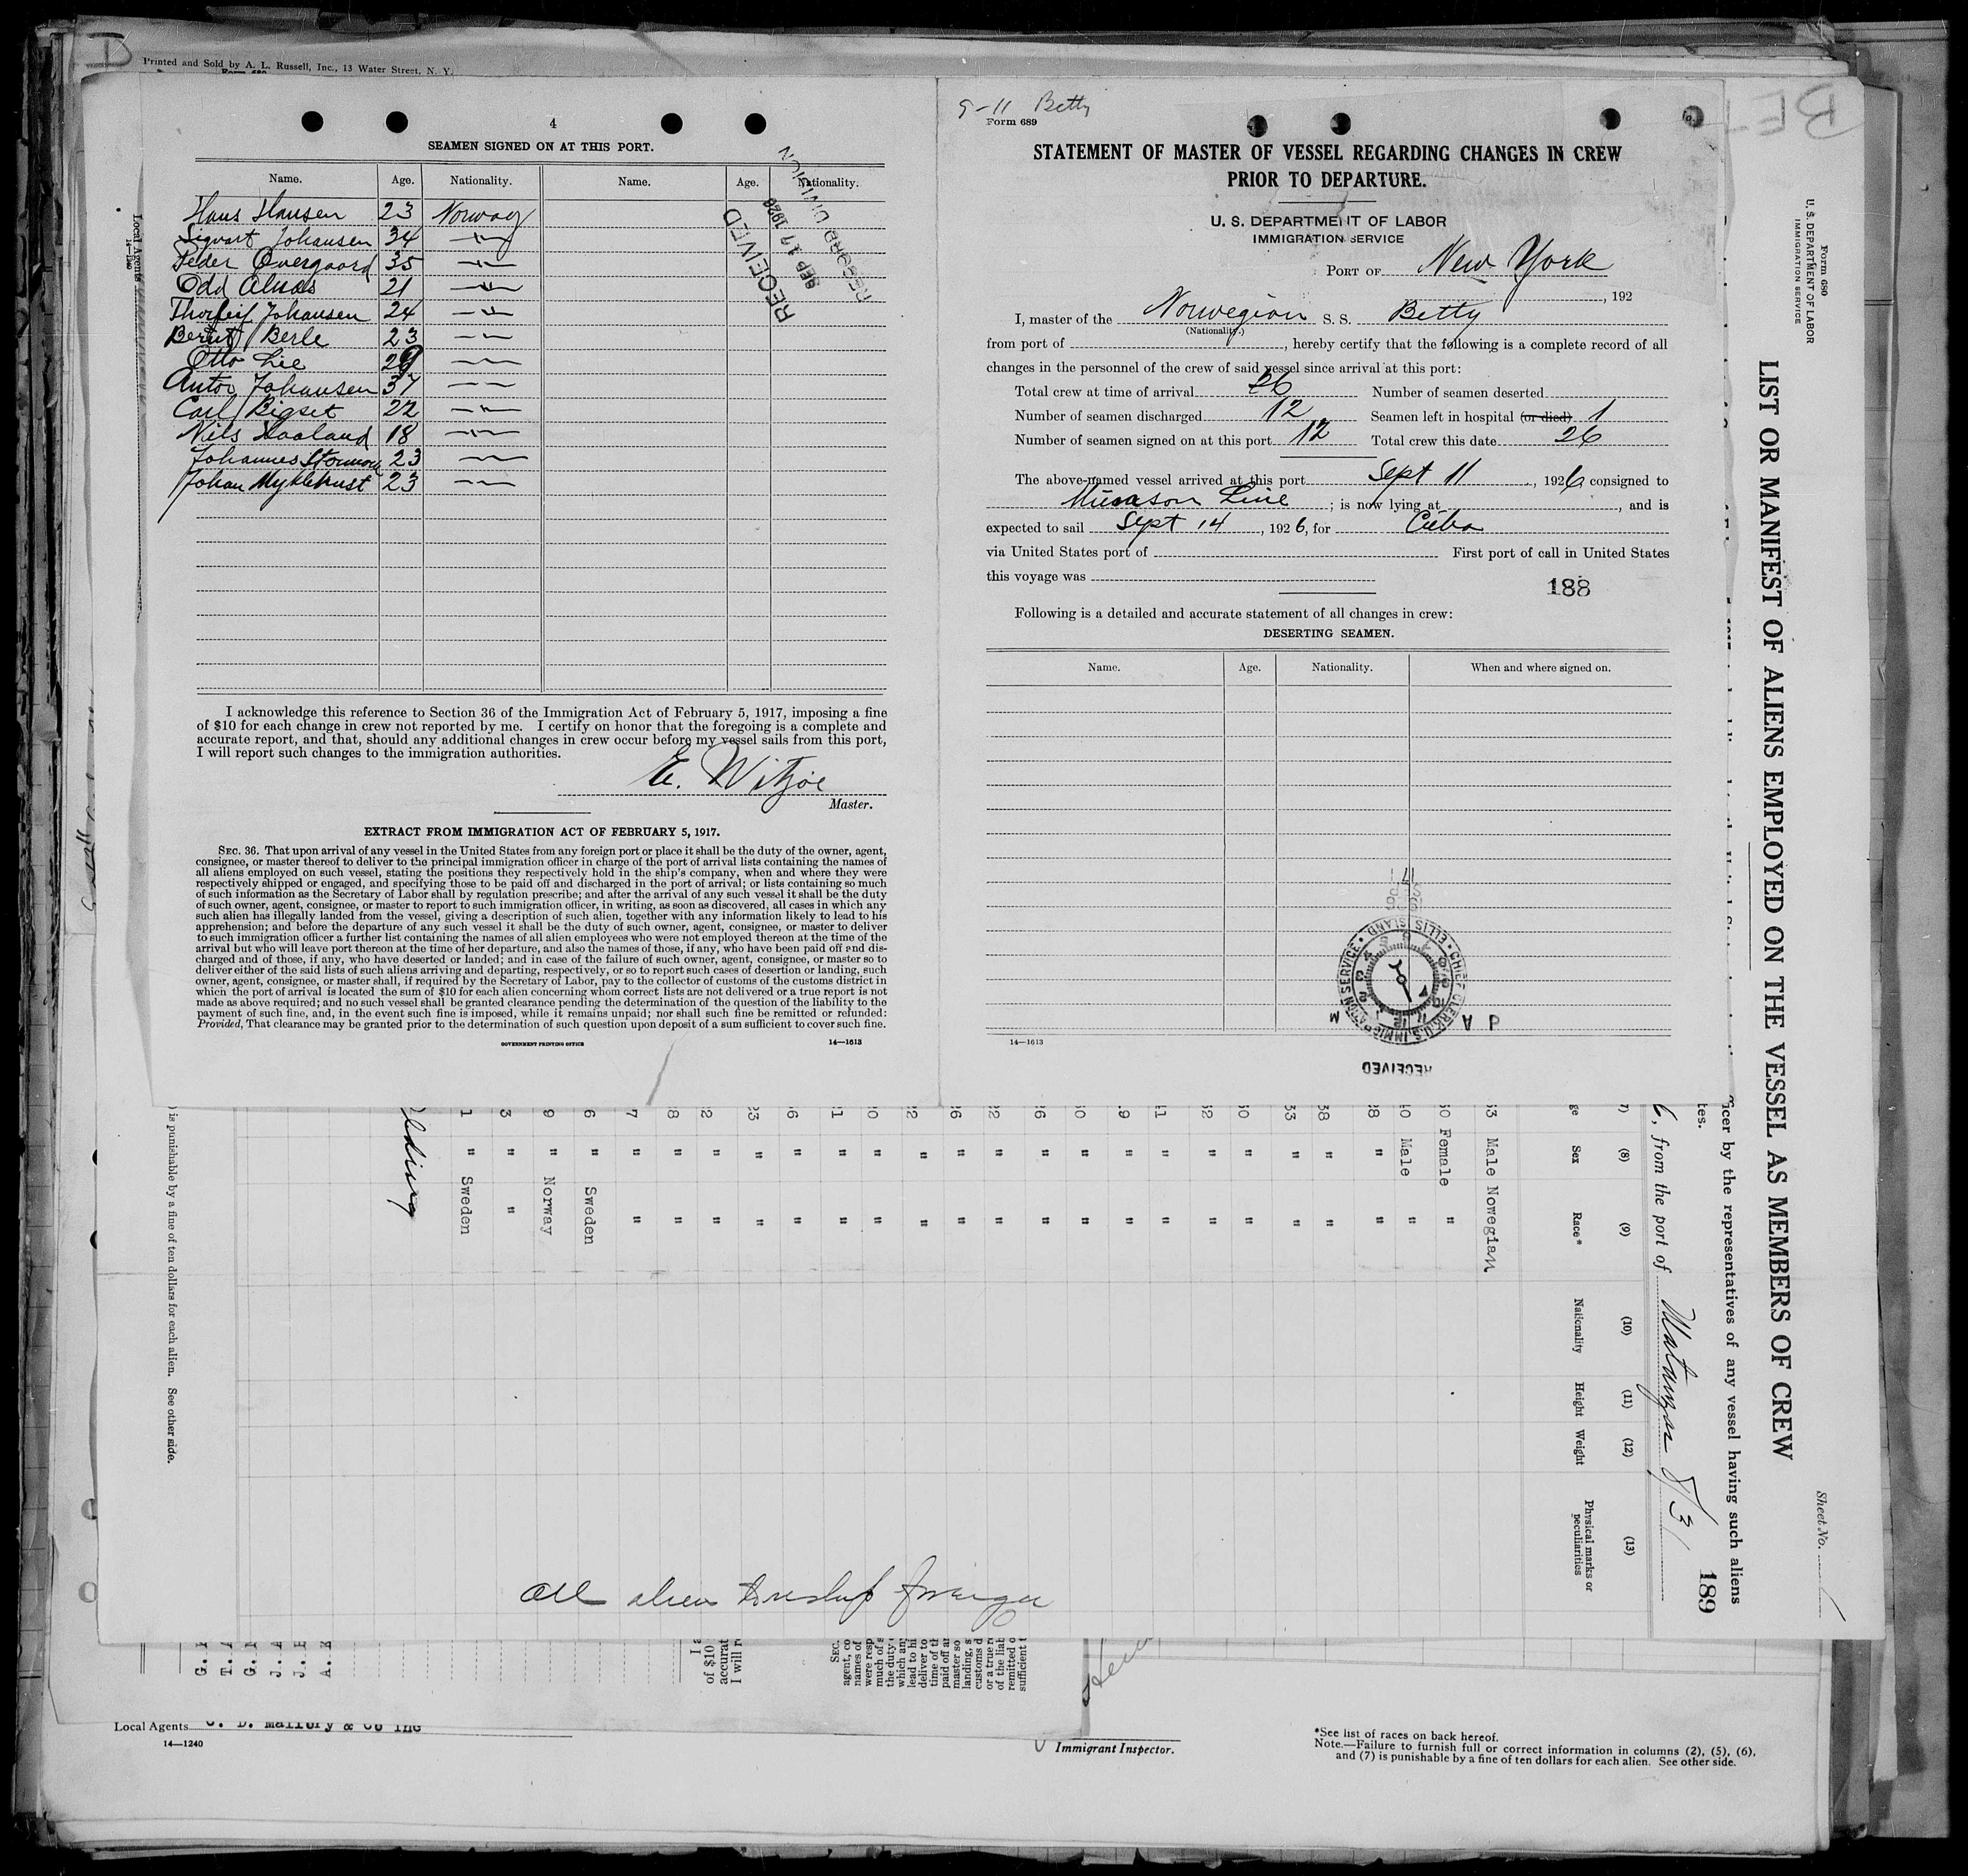 Printed and Sold by A. L. Russell, Inc., 13 Water Street, N. Y.
4
SEAMEN SIGNED ON AT THIS PORT.
Name. Age. Nationality. Name. Age. Nationality.
Hans Hansen 23 Norway
Sigvart Johansen 34 —〃—
Peder Overgaard 35 —〃—
Odd 21 —〃—
Thorleif Johansen 24 —〃—
Bernt Berle 23 —〃—
Otto Lie 29 —〃—
Anton Johansen 37 —〃—
Carl Bigset 22 —〃—
Nils Haaland 18 —〃—
Johannes 23 —〃—
Johan Myklebust 23 —〃—
RECEIVED
SEP 17 1926
RECORD DIVISION
I acknowledge this reference to Section 36 of the Immigration Act of February 5, 1917, imposing a fine
of $10 for each change in crew not reported by me. I certify on honor that the foregoing is a complete and
accurate report, and that, should any additional changes in crew occur before my vessel sails from this port,
I will report such changes to the immigration authorities.
E. Witzöe
Master.
EXTRACT FROM IMMIGRATION ACT OF FEBRUARY 5, 1917.
SEC. 36. That upon arrival of any vessel in the United States from any foreign port or place it shall be the duty of the owner, agent,
consignee, or master thereof to deliver to the principal immigration officer in charge of the port of arrival lists containing the names of
all aliens employed on such vessel, stating the positions they respectively hold in the ship's company, when and where they were
respectively shipped or engaged, and specifying those to be paid off and discharged in the port of arrival; or lists containing so much
of such information as the Secretary of Labor shall by regulation prescribe; and after the arrival of any such vessel it shall be the duty
of such owner, agent, consignee, or master to report to such immigration officer, in writing, as soon as discovered, all cases in which any
such alien has illegally landed from the vessel, giving a description of such alien, together with any information likely to lead to his
apprehension; and before the departure of any such vessel it shall be the duty of such owner, agent, consignee, or master to deliver
to such immigration officer a further list containing the names of all alien employees who were not employed thereon at the time of the
arrival but who will leave port thereon at the time of her departure, and also the names of those, if any, who have been paid off and dis-
charged and of those, if any, who have deserted or landed; and in case of the failure of such owner, agent, consignee, or master so to
deliver either of the said lists of such aliens arriving and departing, respectively, or so to report such cases of desertion or landing, such
owner, agent, consignee, or master shall, if required by the Secretary of Labor, pay to the collector of customs of the customs district in
which the port of arrival is located the sum of $10 for each alien concerning whom correct lists are not delivered or a true report is not
made as above required; and no such vessel shall be granted clearance pending the determination of the question of the liability to the
payment of such fine, and, in the event such fine is imposed, while it remains unpaid; nor shall such fine be remitted or refunded:
Provided, That clearance may be granted prior to the determination of such question upon deposit of a sum sufficient to cover such fine.
GOVERNMENT PRINTING OFFICE 14—1613
9-11 Betty
Form 689
STATEMENT OF MASTER OF VESSEL REGARDING CHANGES IN CREW
PRIOR TO DEPARTURE.
U. S. DEPARTMENT OF LABOR
IMMIGRATION SERVICE
PORT OF New York
, 192
I, master of the Norwegian S. S. Betty
(Nationality.)
from port of , hereby certify that the following is a complete record of all
changes in the personnel of the crew of said vessel since arrival at this port:
Total crew at time of arrival 26 Number of seamen deserted
Number of seamen discharged 12 Seamen left in hospital (or died) 1
Number of seamen signed on at this port 12 Total crew this date 26
The above-named vessel arrived at this port Sept 11, 1926 consigned to
Munson Line ; is now lying at , and is
expected to sail Sept 14, 1926, for Cuba
via United States port of First port of call in United States
this voyage was
188
Following is a detailed and accurate statement of all changes in crew:
DESERTING SEAMEN.
Name. Age. Nationality. When and where signed on.
CHIEF CLERK U.S. IMMIGRATION SERVICE · ELLIS ISLAND
RECEIVED
14—1613
Form 680
U. S. DEPARTMENT OF LABOR
IMMIGRATION SERVICE
LIST OR MANIFEST OF ALIENS EMPLOYED ON THE VESSEL AS MEMBERS OF CREW
Sheet No.
ficer by the representatives of any vessel having such aliens
tes.
189
6, from the port of Matanzas 8/31
(7) (8) (9) (10) (11) (12) (13)
ge Sex Race* Nationality Height Weight Physical marks or peculiarities
33 Male Nowegian
30 Female "
40 Male "
38 " "
38 " "
33 " "
30 " "
32 " "
1 " "
9 " "
0 " "
6 " "
22 " "
6 " "
2 " "
0 " "
1 " "
6 " "
23 " "
2 " "
8 " "
7 " "
6 " Sweden
9 " Norway
3 " "
1 " Sweden
) is punishable by a fine of ten dollars for each alien. See other side.
Local Agents
G.
T.
G.
J.
J.
A.
I a
of $10
accurat
I will r
SEC.
agent, co
names of
were resp
much of s
the duty
which any
lead to hi
deliver to
time of th
paid off an
master so
landing, s
customs d
or a true r
of the liab
remitted o
sufficient t
Local Agents C. D. Mallory & Co Inc
14—1240
Immigrant Inspector.
*See list of races on back hereof.
Note.—Failure to furnish full or correct information in columns (2), (5), (6),
and (7) is punishable by a fine of ten dollars for each alien. See other side.